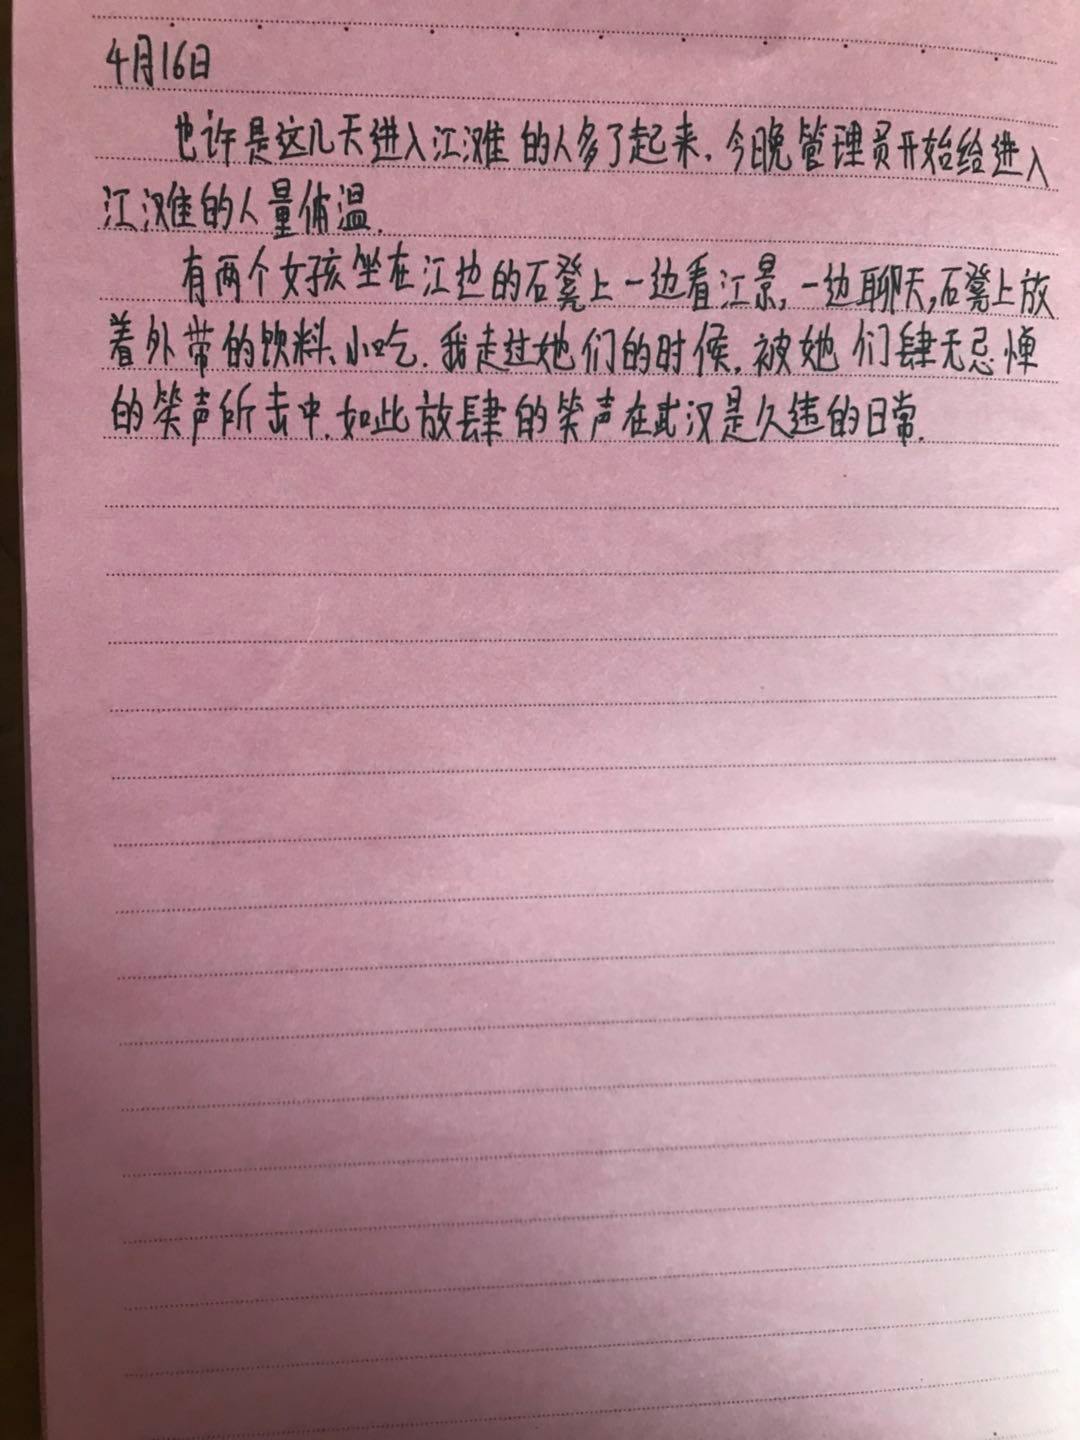 4月16日
也许是这几天进入江滩的人多了起来,今晚管理员开始给进入
江滩的人量体温.
有两个女孩坐在江边的石凳上一边看江景,一边聊天,石凳上放
着外带的饮料、小吃.我走过她们的时候,被她们肆无忌惮
的笑声所击中.如此放肆的笑声在武汉是久违的日常.